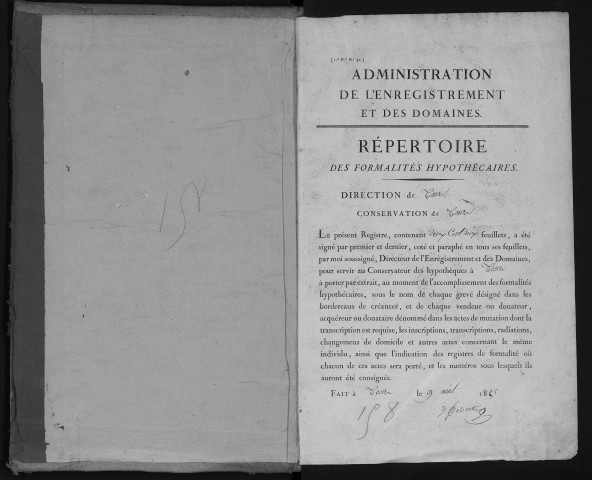 158
ADMINISTRATION
DE L'ENREGISTREMENT
ET DES DOMAINES.
RÉPERTOIRE
DES FORMALITÉS HYPOTHÉCAIRES.
DIRECTION de Tours
CONSERVATION de Tours
LE présent Registre, contenant deux Cent feuillets, a été
signé par premier et dernier, coté et paraphé en tous ses feuillets,
par moi soussigné, Directeur de l'Enregistrement et des Domaines,
pour servir au Conservateur des hypothèques à Tours
à porter par extrait, au moment de l'accomplissement des formalités
hypothécaires, sous le nom de chaque grevé désigné dans les
bordereaux de créances, et de chaque vendeur ou donateur,
acquéreur ou donataire dénommé dans les actes de mutation dont la
transcription est requise, les inscriptions, transcriptions, radiations,
changemens de domicile et autres actes concernant le même
individu, ainsi que l'indication des registres de formalité où
chacun de ces actes sera porté, et les numéros sous lesquels ils
auront été consignés.
FAIT à Tours le 9 18
158